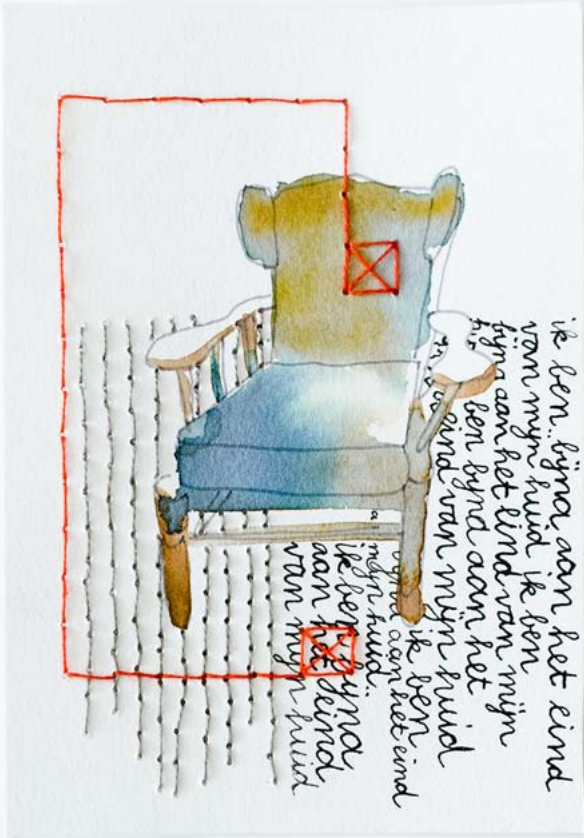 ik ben.. bijna aan het eind
van mijn huid ik ben
bijna aan het eind van mijn
ben bijna aan het
eind van mijn huid
ik ben
bijna aan het eind
mijn huid..
ik ben bijna
aan het eind
van mijn huid